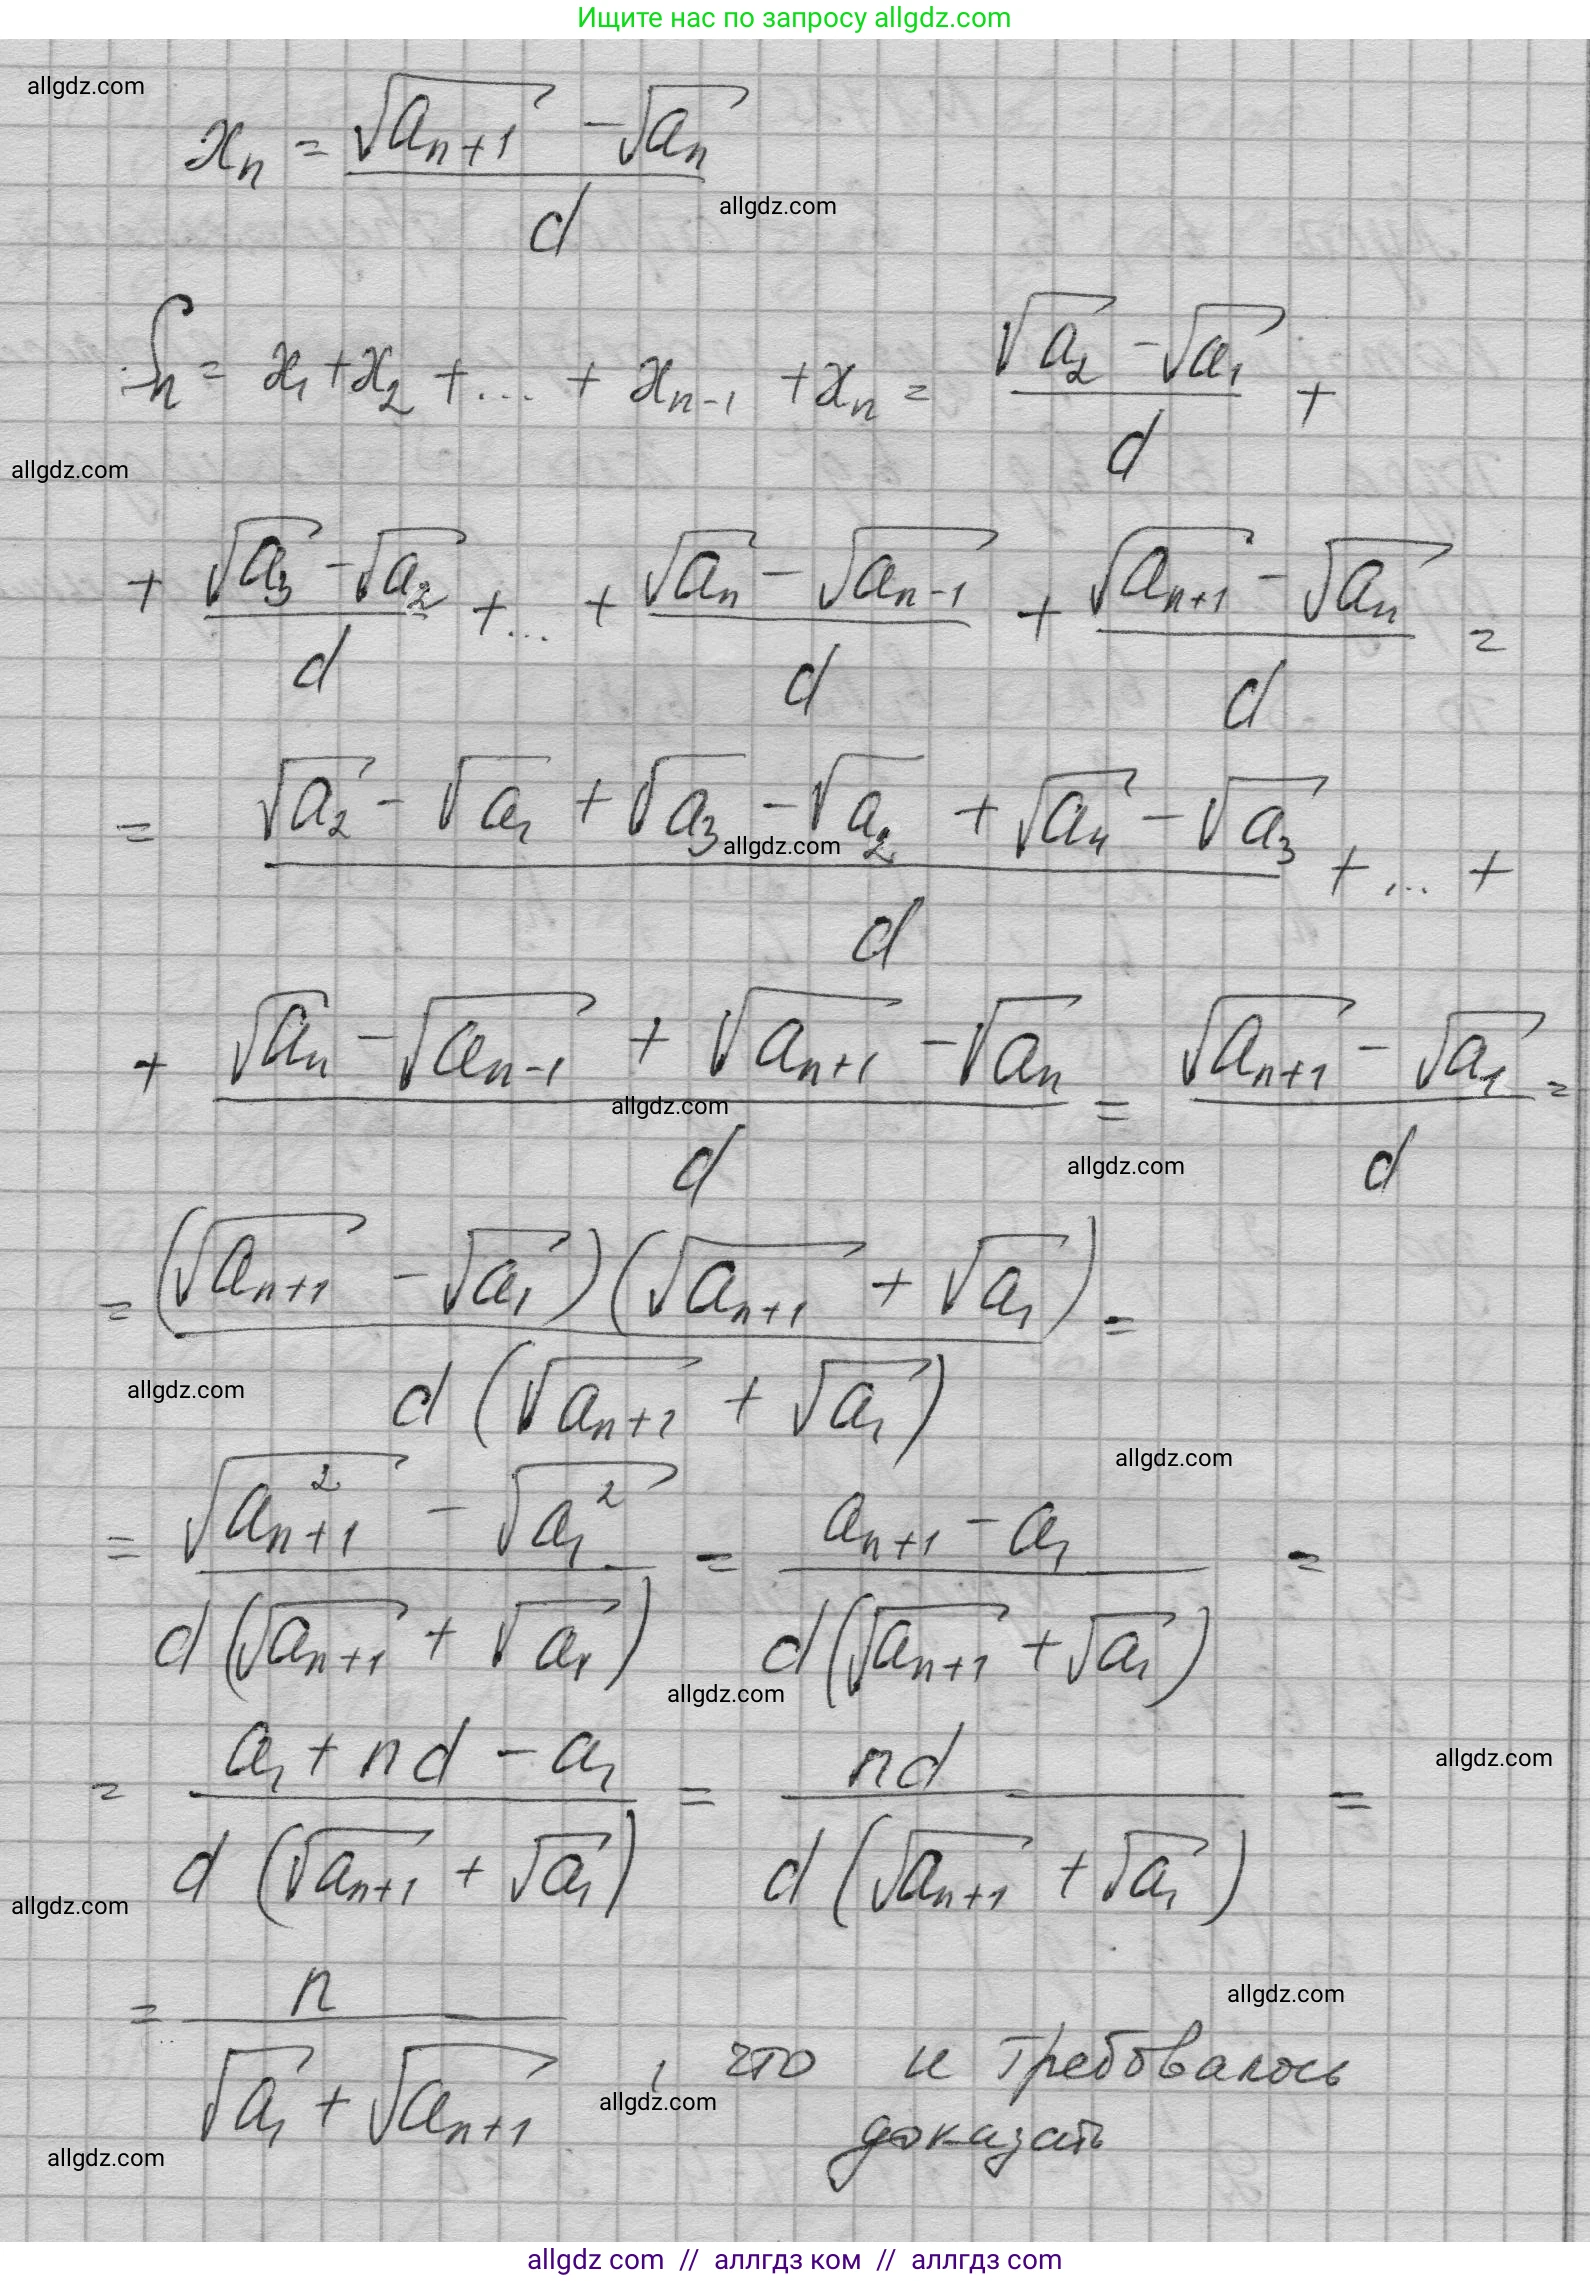 Ищите нас по запросу allgdz.com
allgdz.com
xₙ = (√aₙ₊₁ − √aₙ) / d
allgdz.com
Sₙ = x₁ + x₂ + ... + xₙ₋₁ + xₙ = (√a₂ − √a₁) / d +
allgdz.com
+ (√a₃ − √a₂) / d + ... + (√aₙ − √aₙ₋₁) / d + (√aₙ₊₁ − √aₙ) / d =
= (√a₂ − √a₁ + √a₃ − √a₂ + √a₄ − √a₃) / d + ... +
allgdz.com
+ (√aₙ − √aₙ₋₁ + √aₙ₊₁ − √aₙ) / d = (√aₙ₊₁ − √a₁) / d =
allgdz.com
allgdz.com
= (√aₙ₊₁ − √a₁)(√aₙ₊₁ + √a₁) / d(√aₙ₊₁ + √a₁) =
allgdz.com
allgdz.com
= (√aₙ₊₁² − √a₁²) / d(√aₙ₊₁ + √a₁) = (aₙ₊₁ − a₁) / d(√aₙ₊₁ + √a₁) =
allgdz.com
allgdz.com
= (a₁ + nd − a₁) / d(√aₙ₊₁ + √a₁) = nd / d(√aₙ₊₁ + √a₁) =
allgdz.com
allgdz.com
= n / (√a₁ + √aₙ₊₁), что и требовалось
allgdz.com
доказать
allgdz.com
allgdz com // аллгдз ком // аллгдз com